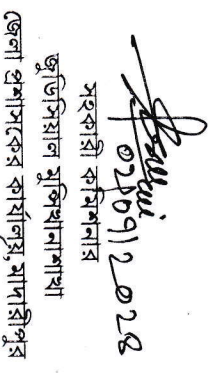 ০২/০৭/২০২৪
সহকারি কমিশনার
জুডিসিয়াল মুন্সিখানা শাখা
জেলা প্রশাসকের কার্যালয়, মাদারীপুর